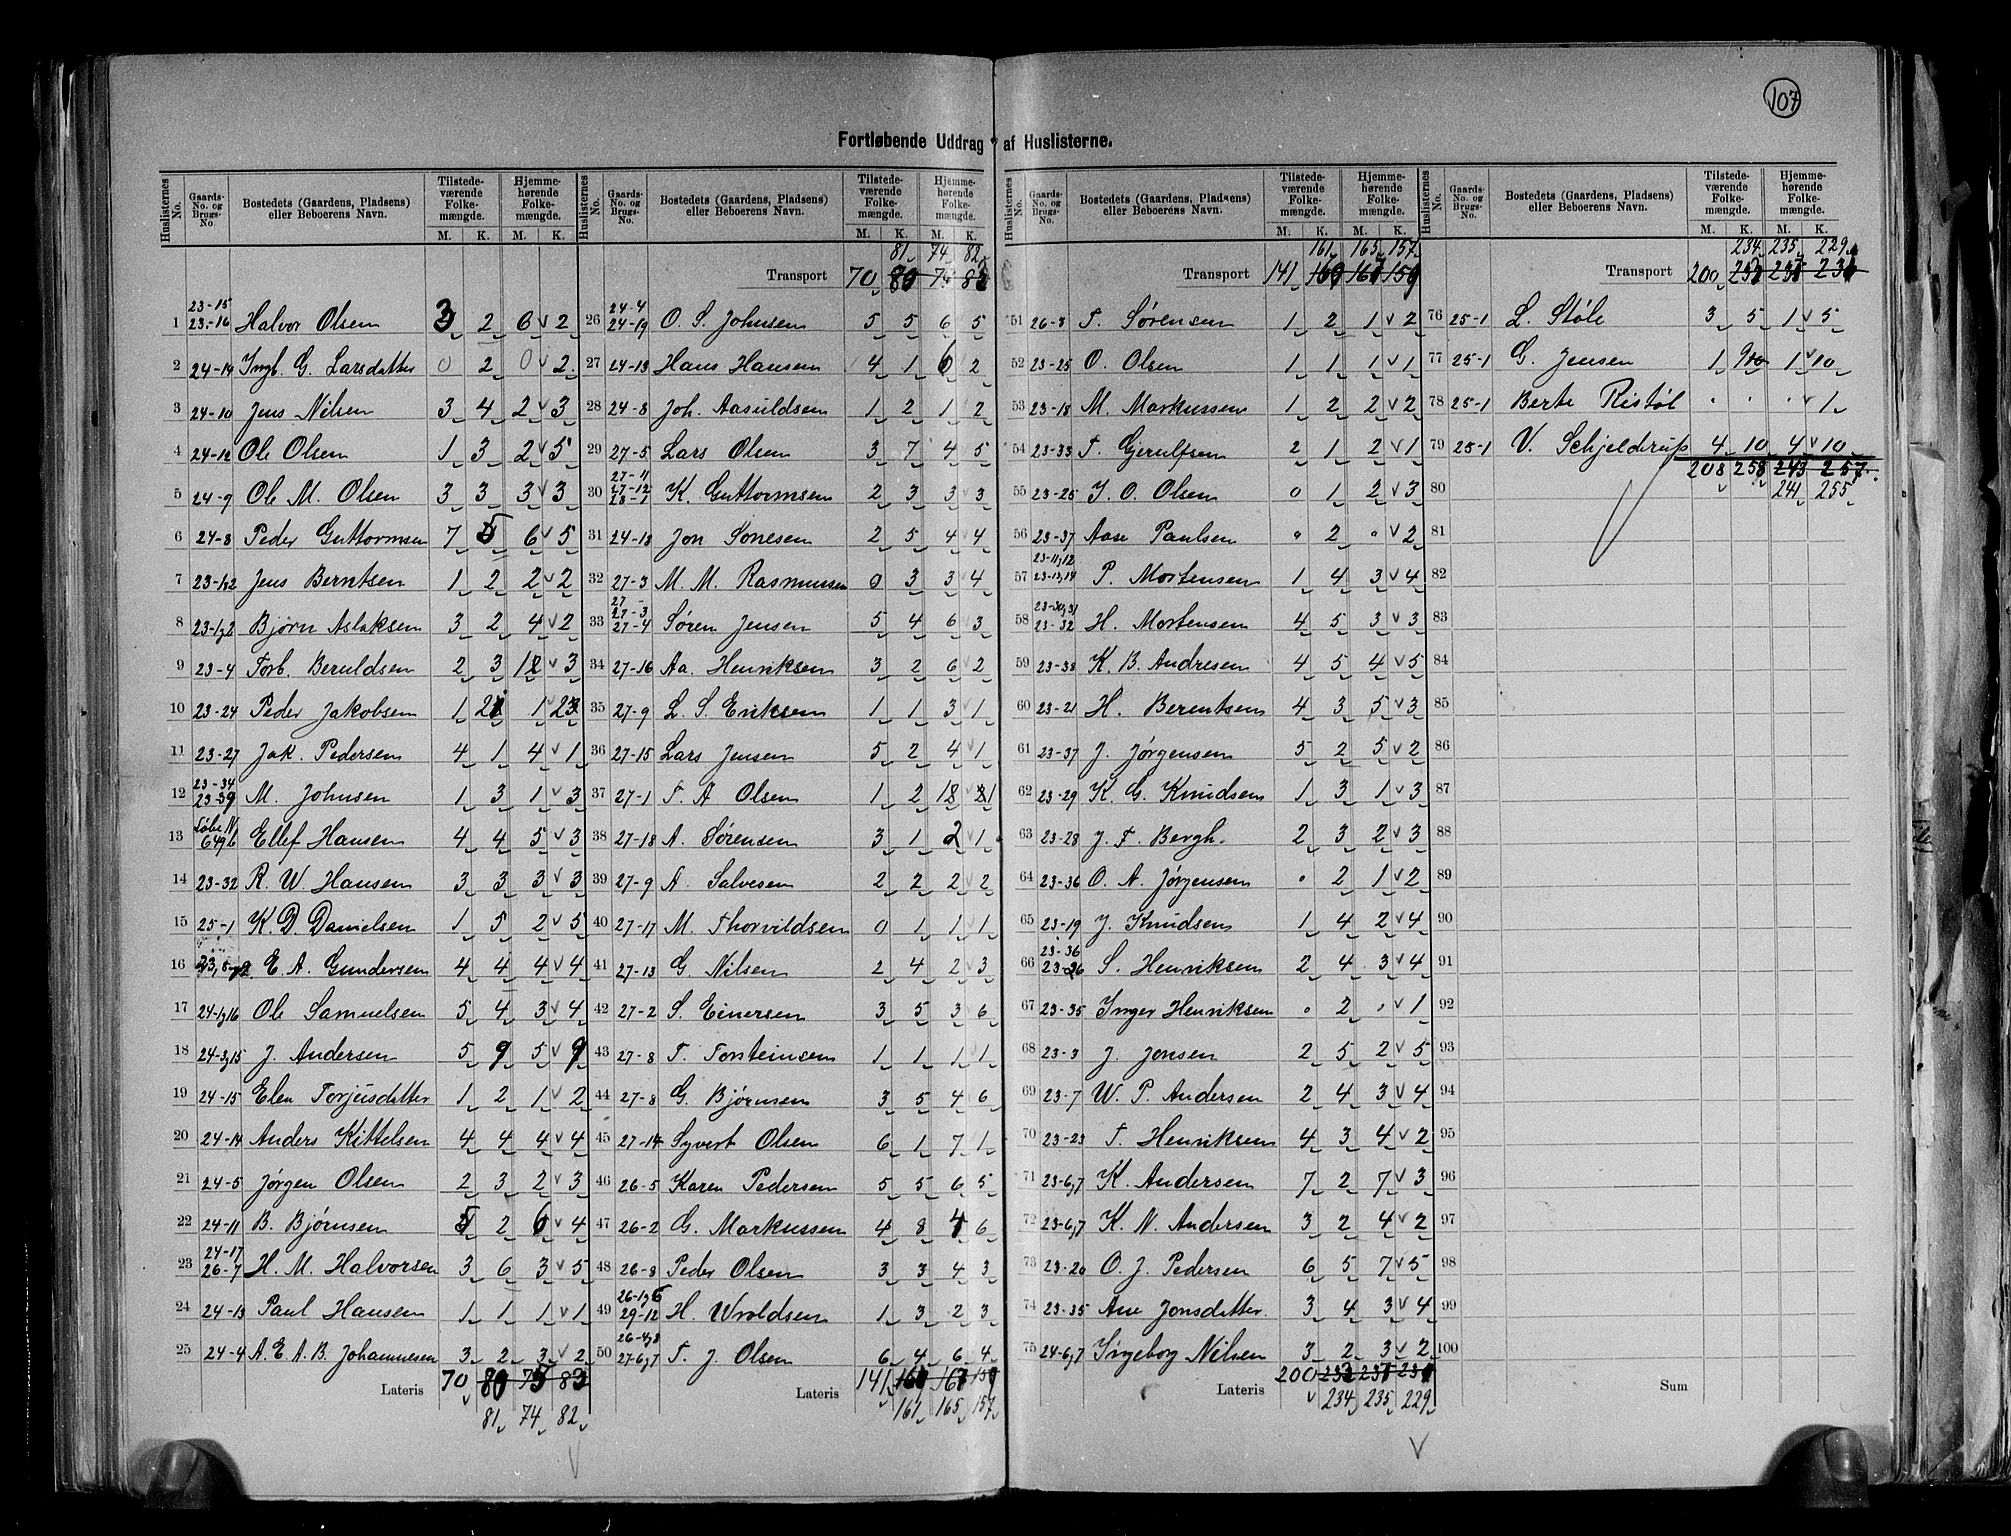 107
Fortløbende Uddrag af Huslisterne.
Huslisternes No. Gaards-No. og Brugs-No. Bostedets (Gaardens, Pladsens) eller Beboerens Navn. Tilstedeværende Folkemængde. Hjemmehørende Folkemængde. M. K. M. K.
1 23-15 23-16 Halvor Olsen 3 2 6 2
2 24-14 Ingb. G. Larsdatter 0 2 0 2
3 24-10 Jens Nilsen 3 4 2 3
4 24-12 Ole Olsen 1 3 2 5
5 24-9 Ole M. Olsen 3 3 3 3
6 24-8 Peder Guttormsen 7 5 6 5
7 23-1,2 Jens Berntsen 1 2 2 2
8 23-1,2 Bjørn Aslaksen 3 2 4 2
9 23-4 Torb. Beruldsen 2 3 1 3
10 23-24 Peder Jakobsen 1 2 1 2
11 23-27 Jak. Pedersen 4 1 4 1
12 23-34 23-39 M. Johnsen 1 3 1 3
13 Løbe N 649b Ellef Hansen 4 4 5 3
14 23-32 R. W. Hansen 3 3 3 3
15 25-1 K. D. Danielsen 1 5 2 5
16 E. A. Gundersen 4 4 4 4
17 24-1,16 Ole Samuelsen 5 4 3 4
18 24-3,15 J. Andersen 5 9 5 9
19 24-15 Elen Torjusdatter 1 2 1 2
20 24-14 Anders Kittelsen 4 4 4 4
21 24-5 Jørgen Olsen 2 3 2 3
22 24-11 B. Bjørnsen 5 2 6 4
23 24-17 26-7 H. M. Halvorsen 3 6 3 5
24 24-13 Paul Hansen 1 1 1 1
25 24-4 A. E. A. B. Johannesen 3 2 3 2
Lateris 70 80 75 83
81 74 82
Huslisternes No. Gaards-No. og Brugs-No. Bostedets (Gaardens, Pladsens) eller Beboerens Navn. Tilstedeværende Folkemængde. Hjemmehørende Folkemængde. M. K. M. K.
81 74 82
Transport 70 80 75 83
26 24-4 24-19 O. S. Johnsen 5 5 6 5
27 24-13 Hans Hansen 4 1 6 2
28 24-8 Joh. Aasuldsen 1 2 1 2
29 27-5 Lars Olsen 3 7 4 5
30 27-11 27-12 K. Guttormsen 2 3 3 3
31 24-18 Jon Tønesen 2 5 4 4
32 27-3 M. M. Rasmussen 0 3 3 4
33 27-3 27-4 Søren Jensen 5 4 6 3
34 27-16 Aa. Henriksen 3 2 6 2
35 27-9 L. S. Eriksen 1 1 3 1
36 27-15 Lars Jensen 5 2 4 1
37 27-1 T. A. Olsen 1 2 1 1
38 27-18 A. Sørensen 3 1 2 1
39 27-9 A. Salvesen 2 2 2 2
40 27-17 M. Thorvildsen 0 1 1 1
41 27-13 G. Nilsen 2 4 2 3
42 27-2 S. Einersen 3 5 3 6
43 27-8 T. Torsteinsen 1 1 1 1
44 27-8 G. Bjørnsen 3 5 4 6
45 27-14 Syvert Olsen 6 1 7 1
46 26-5 Karen Pedersen 5 5 6 5
47 26-2 G. Markussen 4 8 4 6
48 26-8 Peder Olsen 3 3 4 3
49 26-1,6 29-12 H. Wroldsen 1 3 2 3
50 26-4,8 27-6,7 T. J. Olsen 6 4 6 4
Lateris 141 160 167 159
161 165 157
Huslisternes No. Gaards-No. og Brugs-No. Bostedets (Gaardens, Pladsens) eller Beboerens Navn. Tilstedeværende Folkemængde. Hjemmehørende Folkemængde. M. K. M. K.
161 165 157
Transport 141 160 167 159
51 26-3 T. Sørensen 1 2 1 2
52 23-25 O. Olsen 1 1 1 1
53 23-18 M. Markussen 1 2 2 2
54 23-33 T. Gjerulfsen 2 1 2 1
55 23-25 J. O. Olsen 0 1 2 3
56 23-37 Aase Paulsen " 2 " 2
57 23-11,12 23-13,14 P. Mortensen 1 4 3 4
58 23-30,31 23-32 H. Mortensen 4 5 3 3
59 23-38 K. B. Andresen 4 5 4 5
60 23-21 H. Berentsen 4 3 5 3
61 23-37 J. Jørgensen 5 2 5 2
62 23-29 K. G. Knudsen 1 3 1 3
63 23-28 J. F. Bergh. 2 3 2 3
64 23-36 O. A. Jørgensen " 2 1 2
65 23-19 J. Knudsen 1 4 2 4
66 23-36 23-26 S. Henriksen 2 4 3 4
67 23-35 Inger Henriksen " 2 " 1
68 23-3 J. Jonsen 2 5 2 5
69 23-7 W. P. Andersen 2 4 3 4
70 23-23 T. Henriksen 4 3 4 2
71 23-6,7 K. Andersen 7 2 7 3
72 23-6,7 K. N. Andersen 3 2 4 2
73 23-20 O. J. Pedersen 6 5 7 5
74 23-35 Ane Jonsdatter 3 4 3 4
75 24-6,7 Ingeborg Nilsen 3 2 3 2
Lateris 200 232 237 231
234 235 229
Huslisternes No. Gaards-No. og Brugs-No. Bostedets (Gaardens, Pladsens) eller Beboerens Navn. Tilstedeværende Folkemængde. Hjemmehørende Folkemængde. M. K. M. K.
234 235 229
Transport 200 232 237 231
76 25-1 L. Støle 3 5 1 5
77 25-1 G. Jensen 1 9 1 10
78 25-1 Berte Ristøl . . . 1
79 25-1 V. Schjelderup 4 10 4 10
208 258 243 257
80 241 255
81
82
83
84
85
86
87
88
89
90
91
92
93
94
95
96
97
98
99
100
Sum